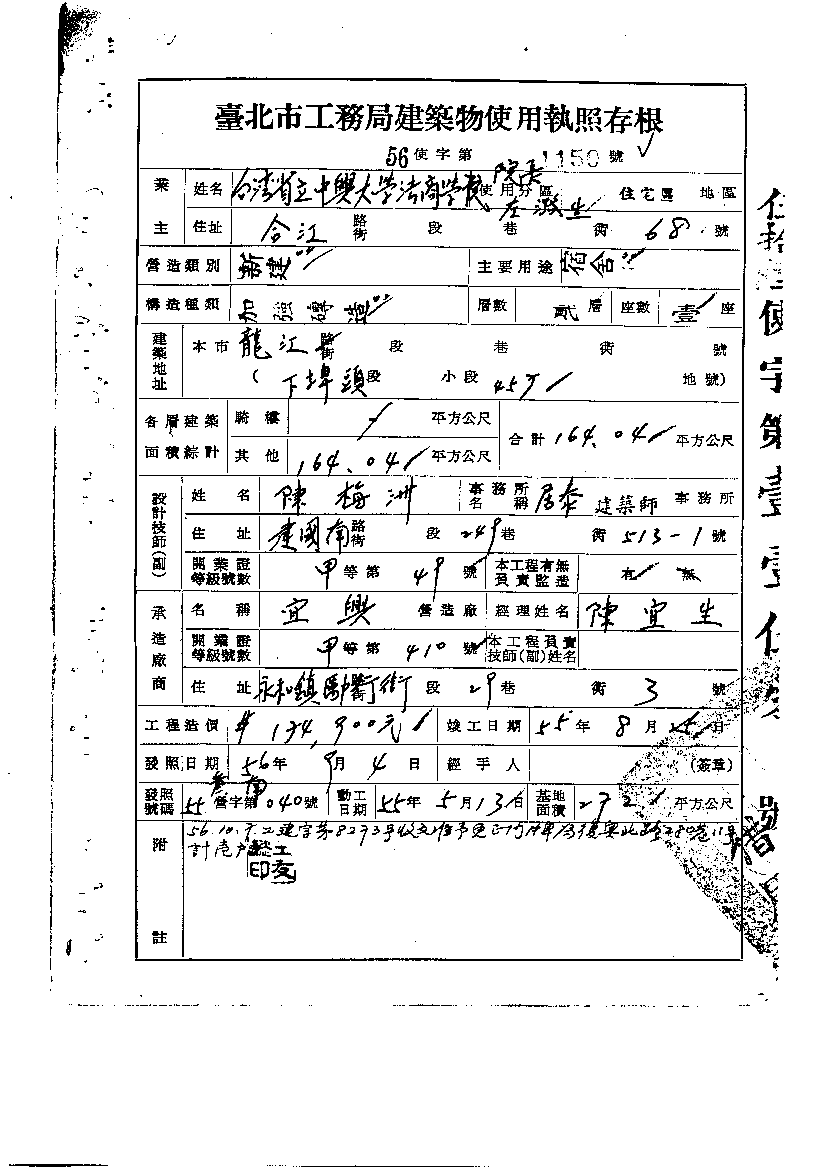 臺北市工務局建築物使用執照存根
56 使字第 1150 號
業主 姓名 台灣省立中興大學法商學院 院長 左潞生 使用分區 住宅區 地區
住址 合江 路街 段 巷 街 68 號
營造類別 新建 主要用途 宿舍
構造種類 加強磚造 層數 貳 層 座數 壹 座
建築地址 本市 龍江 路街 段 巷 街 號
( 下埤頭 段 小段 457 地號)
各層建築面積綜計 騎樓 平方公尺 合計 164.04 平方公尺
其他 164.04 平方公尺
設計技師(副) 姓名 陳梅洲 事務所名稱 居泰 建築師 事務所
住址 建國南 路街 段 249 巷 街 513-1 號
開業證等級號數 甲 等第 49 號 本工程有無負責監造 有 無
承造廠商 名稱 宜興 營造廠 經理姓名 陳宜生
開業證等級號數 甲 等第 410 號 本工程負責技師(副)姓名
住址 永和鎮 街 段 29 巷 街 3 號
工程造價 $134,900元 竣工日期 55 年 8 月 25 日
發照日期 56 年 9 月 4 日 經手人 (簽章)
發照號碼 55 營字第 040 號 動工日期 55 年 5 月 13 日 基地面積 272 平方公尺
附註 56.10.7.工建字第8293號收文准予更正門牌為復興北路280巷11號
計壱戶
使字第壹壹伍
號